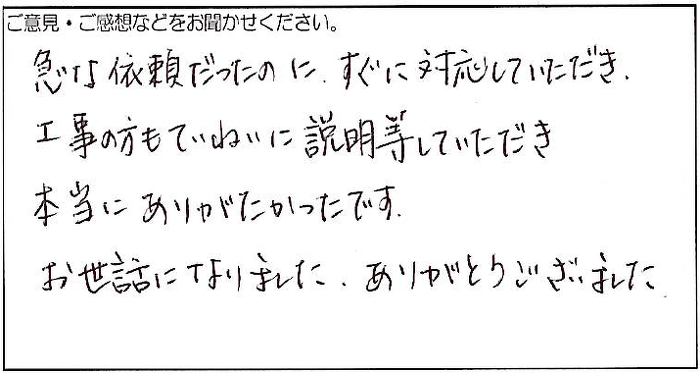 ご意見・ご感想などをお聞かせください。
急な依頼だったのに、すぐに対応していただき、
工事の方もていねいに説明等していただき
本当にありがたかったです。
お世話になりました。ありがとうございました